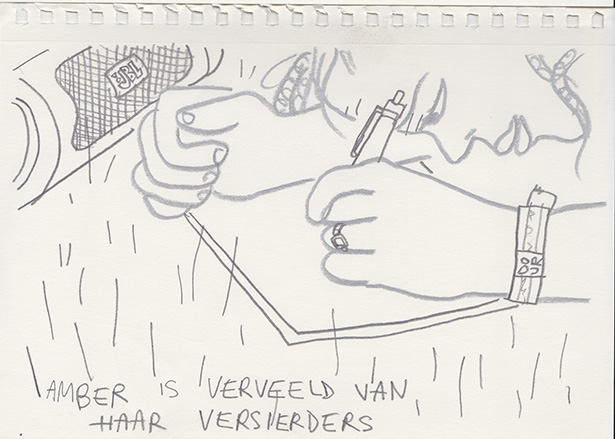 JBL
DOR
DU
AMBER IS VERVEELD VAN
HAAR VERSIERDERS